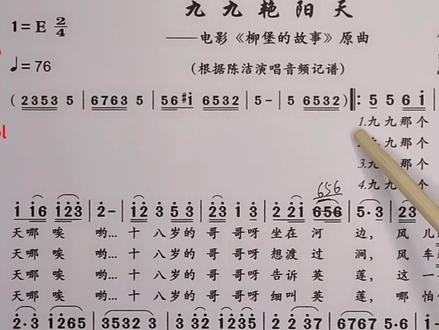 九九艳阳天
1=E 2/4
——电影《柳堡的故事》原曲
♩=76
(根据陈洁演唱音频记谱)
( 2353 5 | 6763 5 | 56 #i 6532 | 5 - | 5 6532 ) ‖: 5 5 6 i
1.九九那个
2.九九那个
3.九九那个
4.九九那个
656
i i6 i23 | 2 - | i2 3 53 | 23 i 3 | 2 2i 656 | 5·3 | 23
天哪唉 哟... 十八岁的哥哥呀坐在河 边, 风儿
天哪唉 哟... 十八岁的哥哥呀想渡过 涧, 风车
天哪唉 哟... 十八岁的哥哥呀告诉英 莲, 这一
天哪唉 哟... 十八岁的哥哥呀细叫英 莲, 哪怕